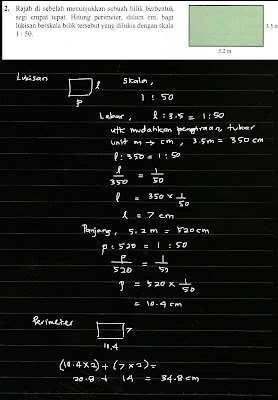 2. Rajah di sebelah menunjukkan sebuah bilik berbentuk
segi empat tepat. Hitung perimeter, dalam cm, bagi
lukisan berskala bilik tersebut yang dilukis dengan skala
1 : 50.
3.5 m
5.2 m
Lukisan
l
p
Skala,
1 : 50
Lebar, l : 3.5 = 1 : 50
utk mudahkan pengiraan, tukar
unit m → cm, 3.5m = 350 cm
l : 350 = 1 : 50
l/350 = 1/50
l = 350 × 1/50
l = 7 cm
Panjang, 5.2 m = 520cm
p : 520 = 1 : 50
p/520 = 1/50
p = 520 × 1/50
= 10.4 cm
Perimeter
7
10.4
(10.4×2) + (7×2) =
20.8 + 14 = 34.8 cm